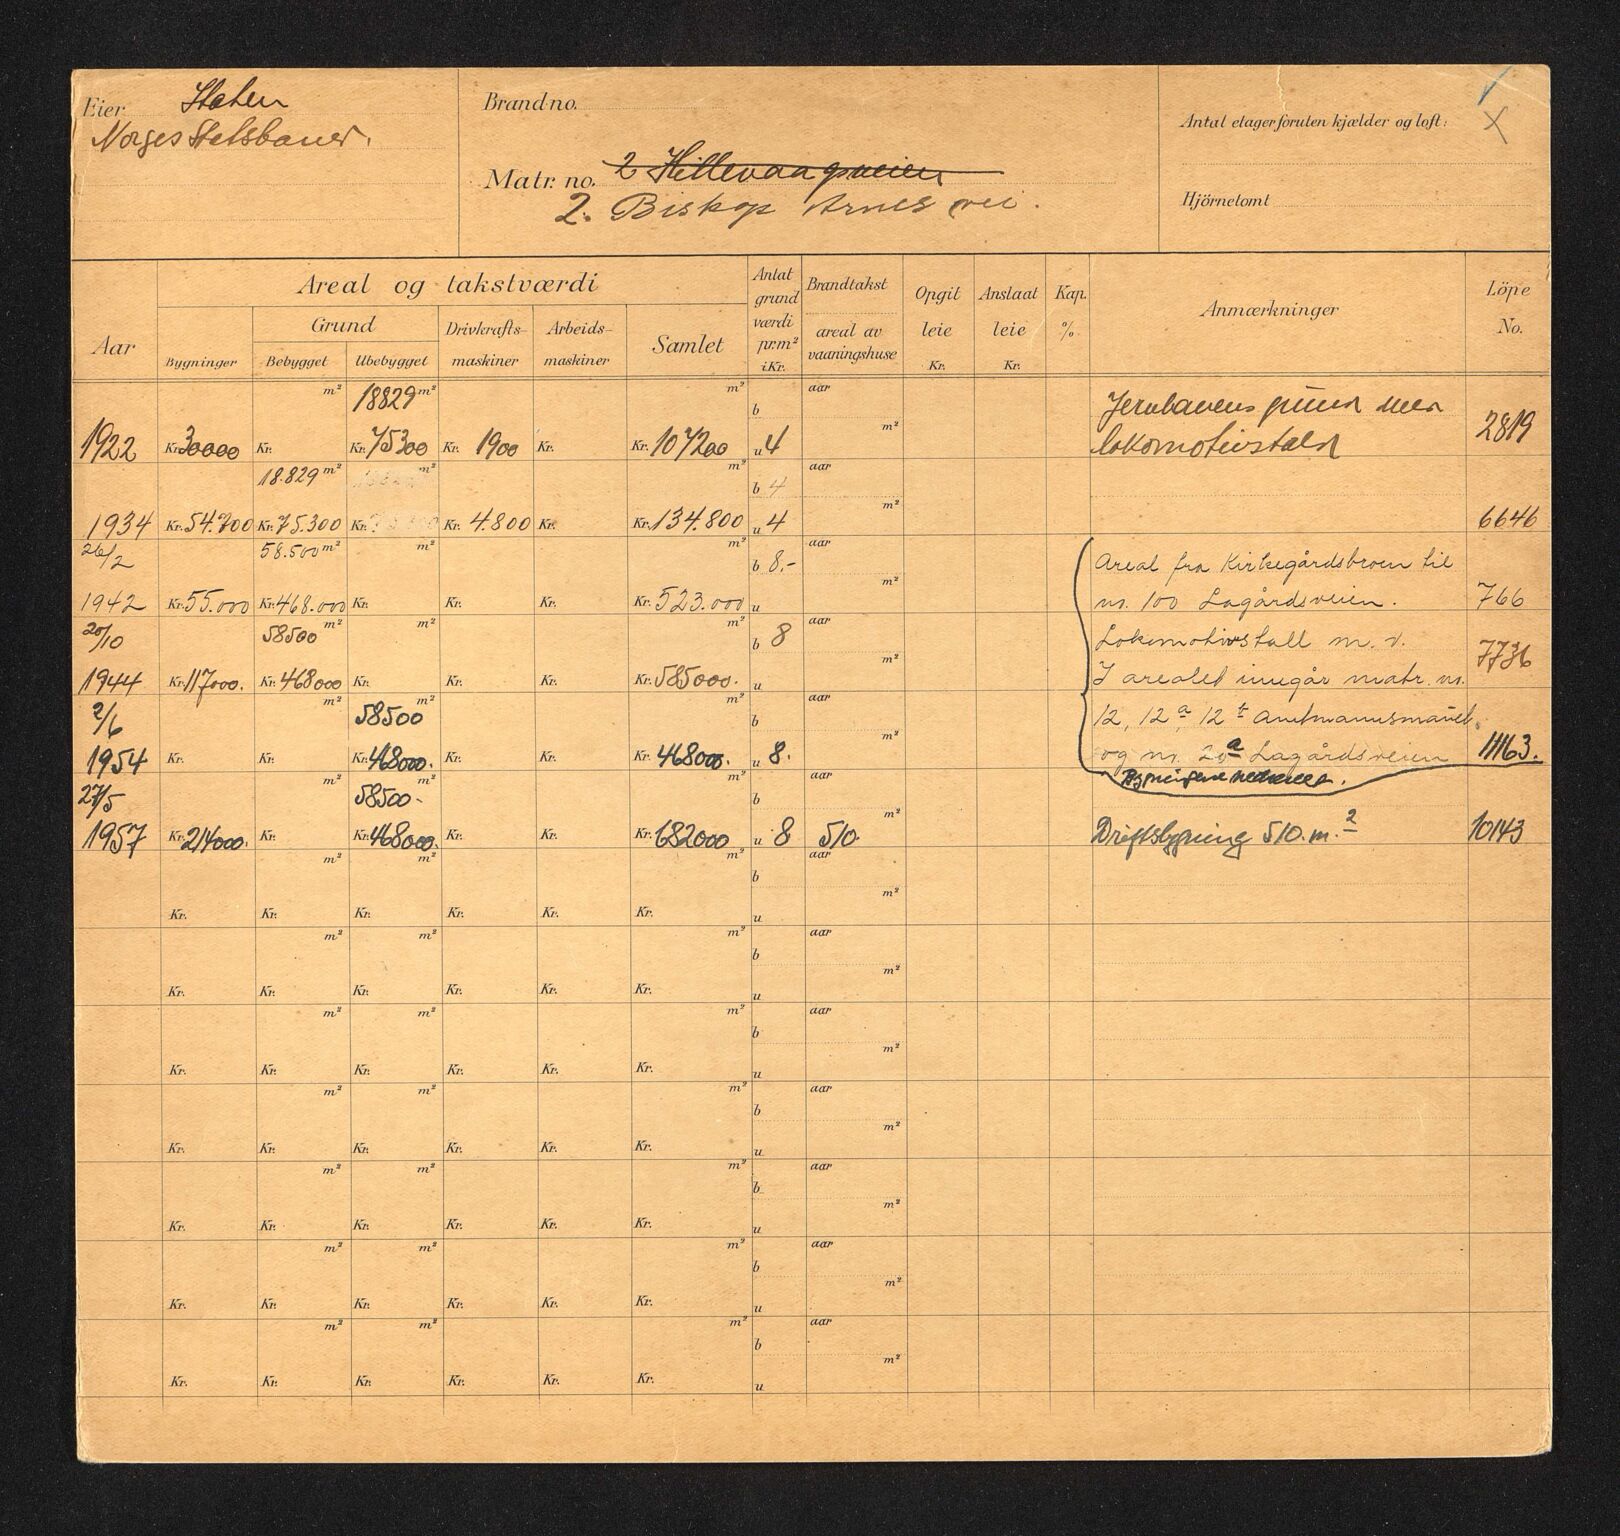 Eier Staten
Norges Statsbaner.
Brand no.
Matr. no. 2 Hillevaagsveien
2. Biskop Arnes vei.
Antal etager foruten kjælder og loft: X
Hjörnetomt
Areal og takstværdi
Aar Bygninger Grund Bebygget Ubebygget Drivkrafts-maskiner Arbeids-maskiner Samlet
Antat grund værdi pr. m² i Kr.
Brandtakst areal av vaaningshuse
Opgit leie Kr.
Anslaat leie Kr.
Kap. %
Anmærkninger
Löpe No.
m² 18829 m² m² b aar m²
1922 Kr. 30000 Kr. Kr. 75300 Kr. 1900 Kr. Kr. 107200 u 4 Jernbanens grund med lokomotivstald 2819
18.829 m² m² m² b 4 aar m²
1934 Kr. 54.700 Kr. 75.300 Kr. Kr. 4.800 Kr. Kr. 134.800 u 4 6646
26/2 58.500 m² m² m² b 8.- aar m²
1942 Kr. 55.000 Kr. 468.000 Kr. Kr. Kr. Kr. 523.000 u 766
Areal fra Kirkegårdsbroen til
nr. 100 Lagårdsveien.
20/10 58500 m² m² m² b 8 aar m²
1944 Kr. 117000. Kr. 468000 Kr. Kr. Kr. Kr. 585000. u 7736
Lokomotivstall m. v.
I arealet inngår matr. nr.
2/6 m² 58500 m² b aar m²
1954 Kr. Kr. Kr. 468000. Kr. Kr. Kr. 468000. u 8. 11163.
12, 12a, 12b Amtmannsmarken
og nr. 20a Lagårdsveien
Bygningene nedrevet.
27/5 m² 58500- m² m² b aar m²
1957 Kr. 214000. Kr. Kr. 468000. Kr. Kr. Kr. 682000 u 8 510 Driftsbygning 510. m.² 10143
m² m² m² b aar m²
Kr. Kr. Kr. Kr. Kr. Kr. u
m² m² m² b aar m²
Kr. Kr. Kr. Kr. Kr. Kr. u
m² m² m² b aar m²
Kr. Kr. Kr. Kr. Kr. Kr. u
m² m² m² b aar m²
Kr. Kr. Kr. Kr. Kr. Kr. u
m² m² m² b aar m²
Kr. Kr. Kr. Kr. Kr. Kr. u
m² m² m² b aar m²
Kr. Kr. Kr. Kr. Kr. Kr. u
m² m² m² b aar m²
Kr. Kr. Kr. Kr. Kr. Kr. u